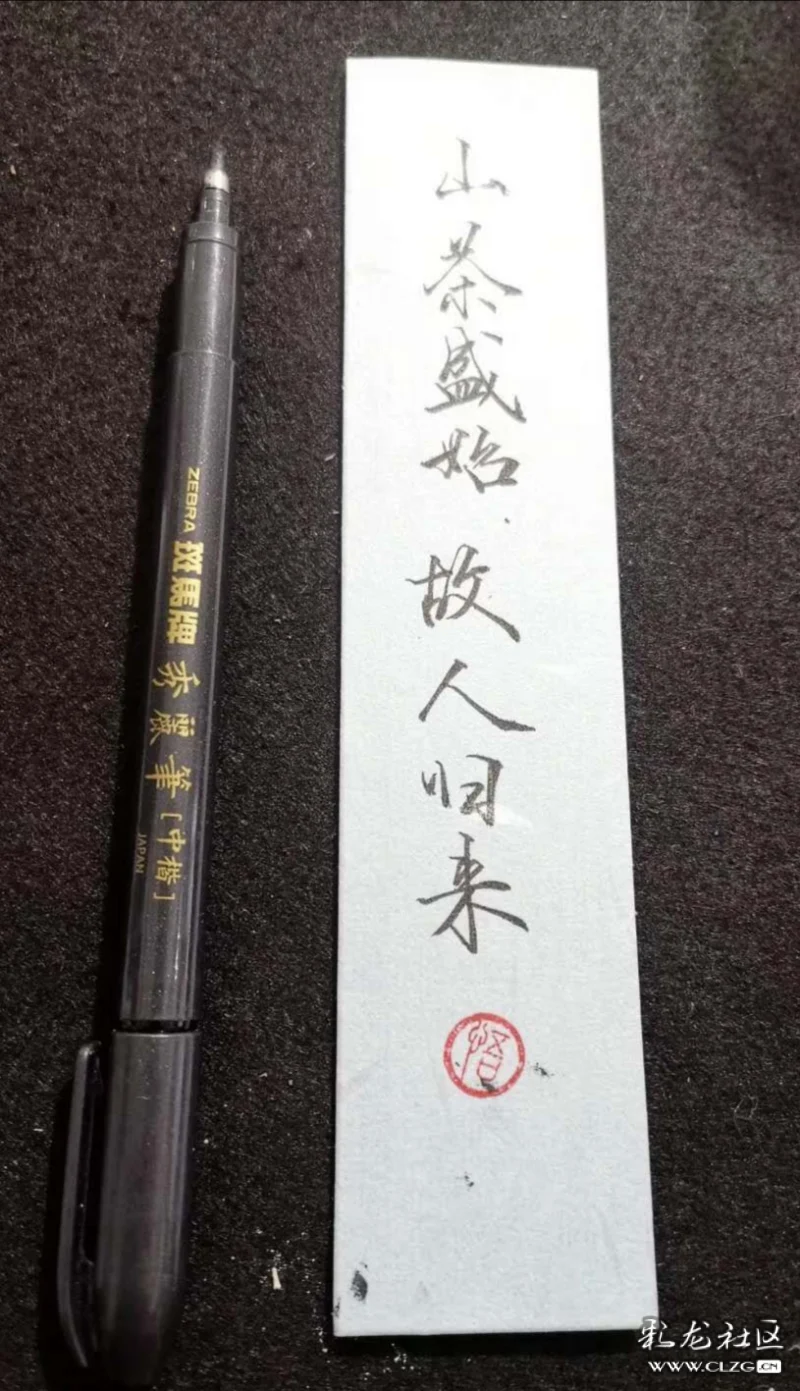 ZEBRA 斑馬牌 秀麗筆 [中楷]
JAPAN
山茶盛始.故人归来
悟
彩龙社区
WWW.CLZG.CN